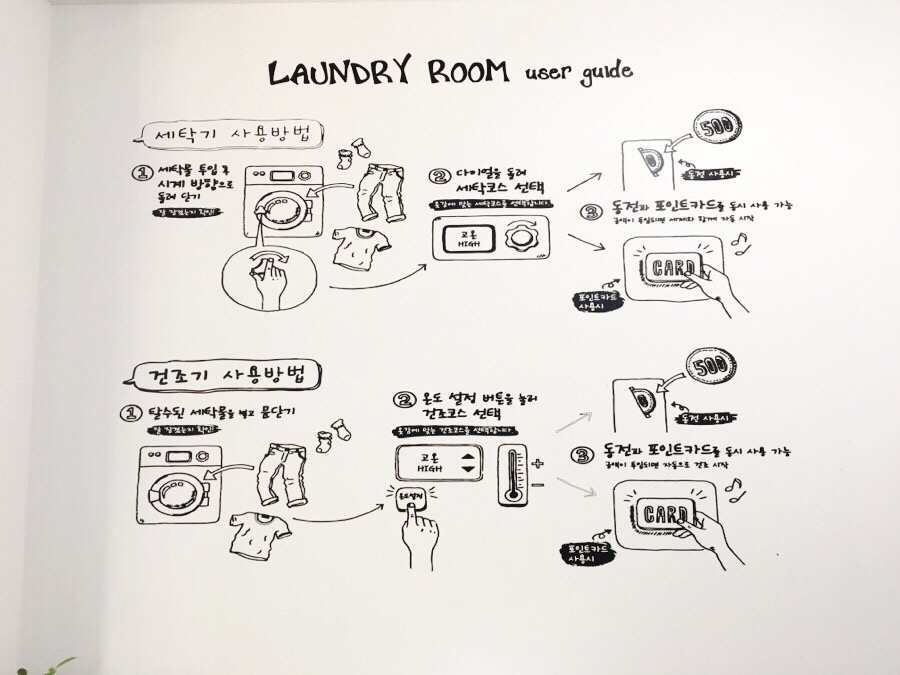 LAUNDRY ROOM user guide
세탁기 사용방법
① 세탁물 투입 후
시계 방향으로
돌려 닫기
잘 잠겼는지 확인!
② 다이얼을 돌려
세탁코스 선택
옷감에 맞는 세탁코스를 선택합니다
고온
HIGH
500
동전 사용시
③ 동전과 포인트카드를 동시 사용 가능
금액이 투입되면 세제와 함께 자동 시작
CARD
포인트카드
사용시
건조기 사용방법
① 탈수된 세탁물을 넣고 문닫기
잘 잠겼는지 확인!
② 온도 설정 버튼을 눌러
건조코스 선택
옷감에 맞는 건조코스를 선택합니다
고온
HIGH
온도설정
+
−
500
동전 사용시
③ 동전과 포인트카드를 동시 사용 가능
금액이 투입되면 자동으로 건조 시작
CARD
포인트카드
사용시